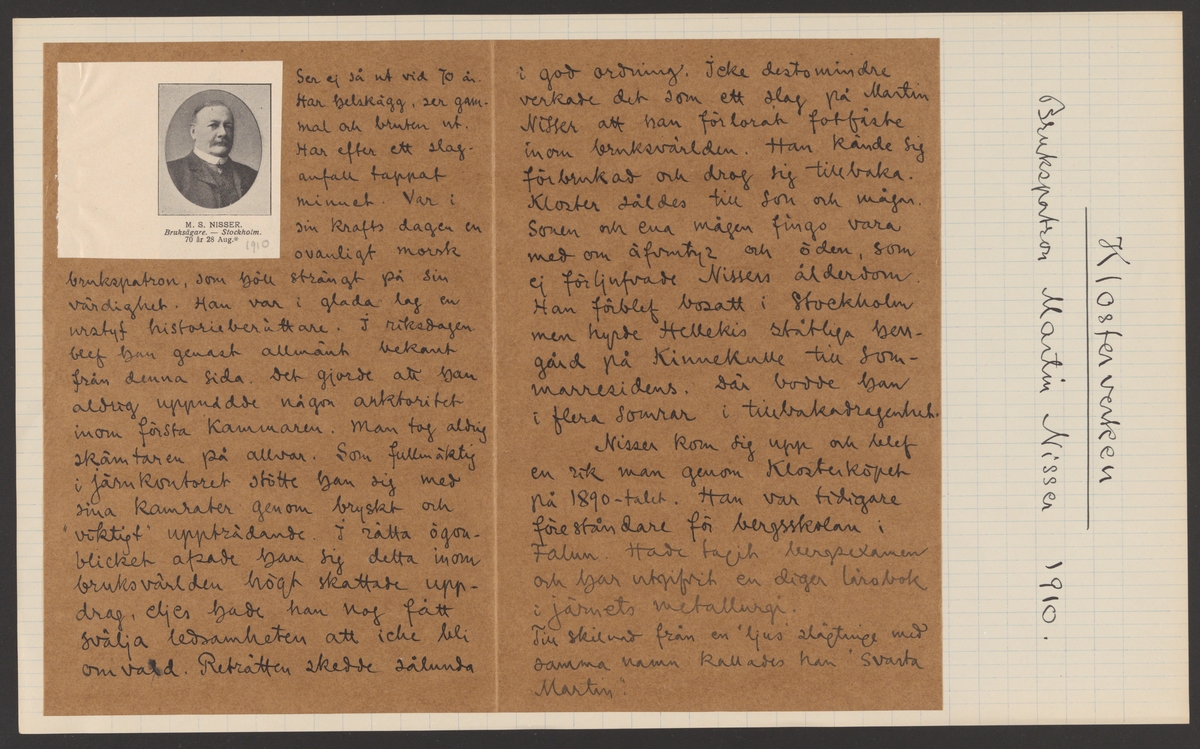 M. S. NISSER.
Bruksägare. — Stockholm.
70 år 28 Aug.
1910
Ser ej så ut vid 70 år.
Har helskägg, ser gam-
mal och bruten ut.
Har efter ett slag-
anfall tappat
minnet. Var i
sin krafts dagar en
ovanligt morsk
brukspatron, som höll strängt på sin
värdighet. Han var i glada lag en
urstyf historieberättare. I riksdagen
blef han genast allmänt bekant
från denna sida. Det gjorde att han
aldrig uppnådde någon auktoritet
inom första Kammaren. Man tog aldrig
skämtaren på allvar. Som fullmäktig
i järnkontoret stötte han sig med
sina kamrater genom bryskt och
'viktigt' uppträdande. I rätta ögon-
blicket afsade han sig detta inom
bruksvärlden högt skattade upp-
drag, eljes hade han nog fått
svälja ledsamheten att icke bli
omvald. Reträtten skedde sålunda
i god ordning. Icke destomindre
verkade det som ett slag på Martin
Nisser att han förlorat fotfäste
inom bruksvärlden. Han kände sig
förbrukad och drog sig tillbaka.
Kloster såldes till son och mågar.
Sonen och ena mågen fingo vara
med om äfventyr och öden, som
ej förljufvade Nissers ålderdom.
Han förblef bosatt i Stockholm
men hyrde Hellekis ståtliga herr-
gård på Kinnekulle till som-
marresidens. Där bodde han
i flera somrar i tillbakadragenhet.
Nisser kom sig upp och blef
en rik man genom Klosterköpet
på 1890-talet. Han var tidigare
föreståndare för bergsskolan i
Falun. Hade tagit bergsexamen
och har utgifvit en diger lärobok
i järnets metallurgi.
Till skilnad från en 'ljus' släktinge med
samma namn kallades han 'Svarta
Martin'.
Klosterverken
Brukspatron Martin Nisser 1910.